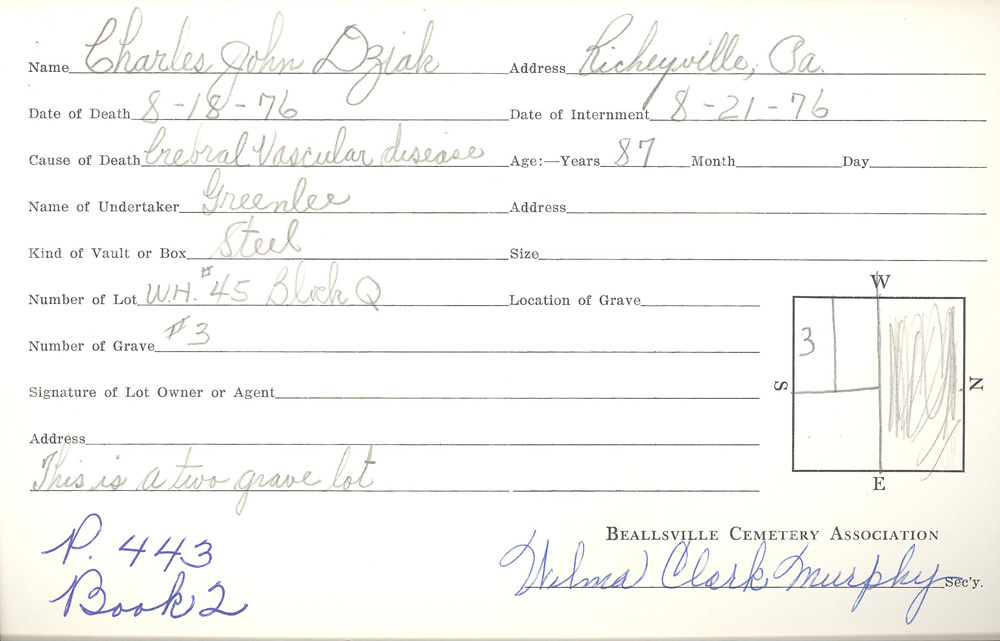 Name Charles John Dziak Address Richeyville, Pa.
Date of Death 8-18-76 Date of Internment 8-21-76
Cause of Death Crebral Vascular disease Age:—Years 87 Month Day
Name of Undertaker Greenlee Address
Kind of Vault or Box Steel Size
Number of Lot W.H. #45 Block Q Location of Grave
Number of Grave #3
Signature of Lot Owner or Agent
Address
This is a two grave lot
W
3
S
N
E
P. 443
Book 2
BEALLSVILLE CEMETERY ASSOCIATION
Wilma Clark Murphy Sec'y.